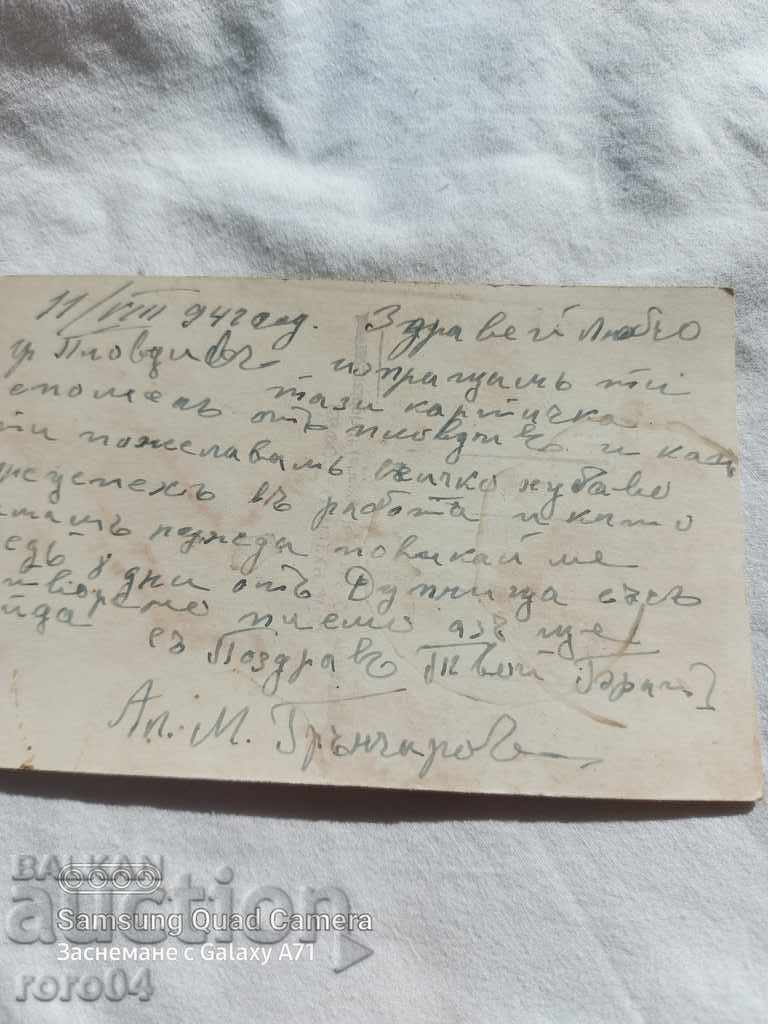 11/VIII 942 год. Здравей Любчо
гр Пловдивъ попращамъ ти
тази картичка
споменъ отъ пловдивъ и
ти пожелавамъ всичко хубаво
успехъ въ работа и като
нужда повикай ме
дни отъ Дупница съсъ
писмо азъ ще
йда
съ Поздравъ Твой Братъ
Ап. М. Грънчаровъ
BALKAN
auction
Samsung Quad Camera
Заснемане с Galaxy A71
roro04